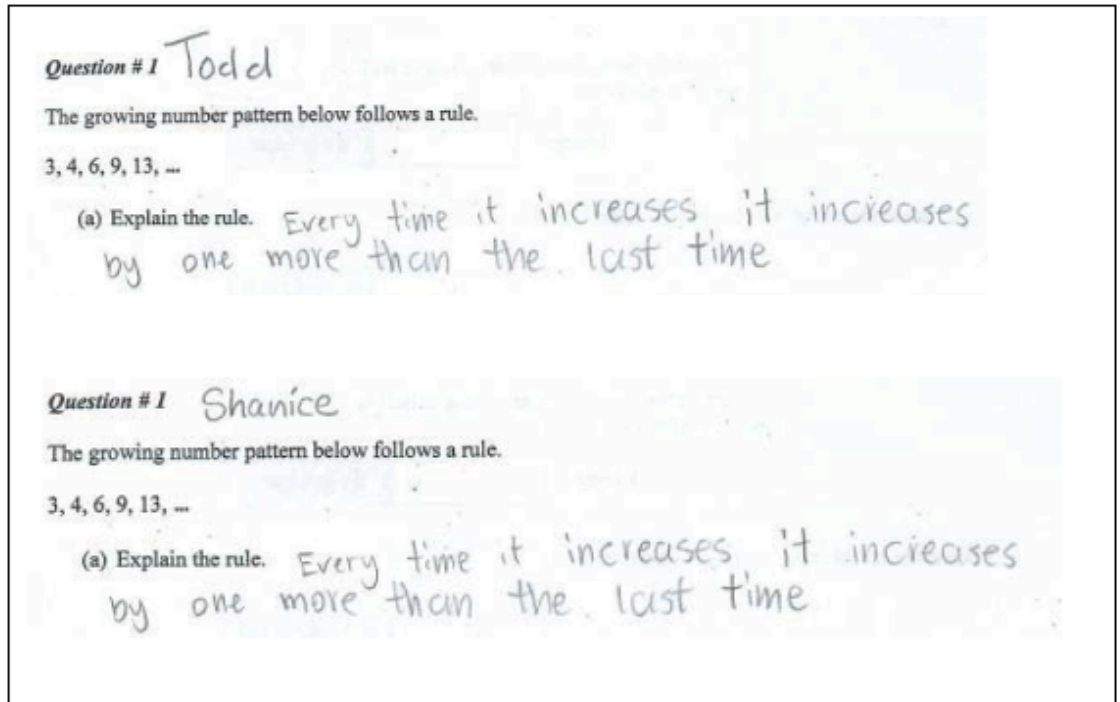 Question # 1 Todd
The growing number pattern below follows a rule.
3, 4, 6, 9, 13, ...
(a) Explain the rule. Every time it increases it increases
by one more than the last time
Question # 1 Shanice
The growing number pattern below follows a rule.
3, 4, 6, 9, 13, ...
(a) Explain the rule. Every time it increases it increases
by one more than the last time